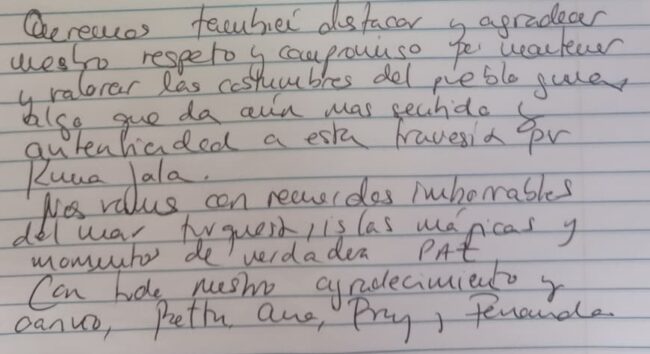 Queremos también destacar y agradecer
nuestro respeto y compromiso de mantener
y valorar las costumbres del pueblo guna,
algo que da aún mas sentido y
autenticidad a esta travesía por
Kuna Yala.
Nos vamos con recuerdos imborrables
del mar turquesa, islas mágicas y
momentos de verdadera PAZ
Con todo nuestro agradecimiento y
cariño, Ana, y Fernanda.